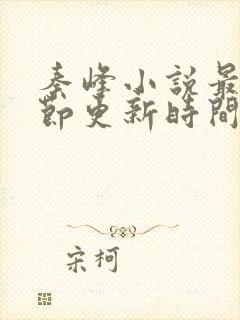 秦峰小說最
節更新時間
宋柯